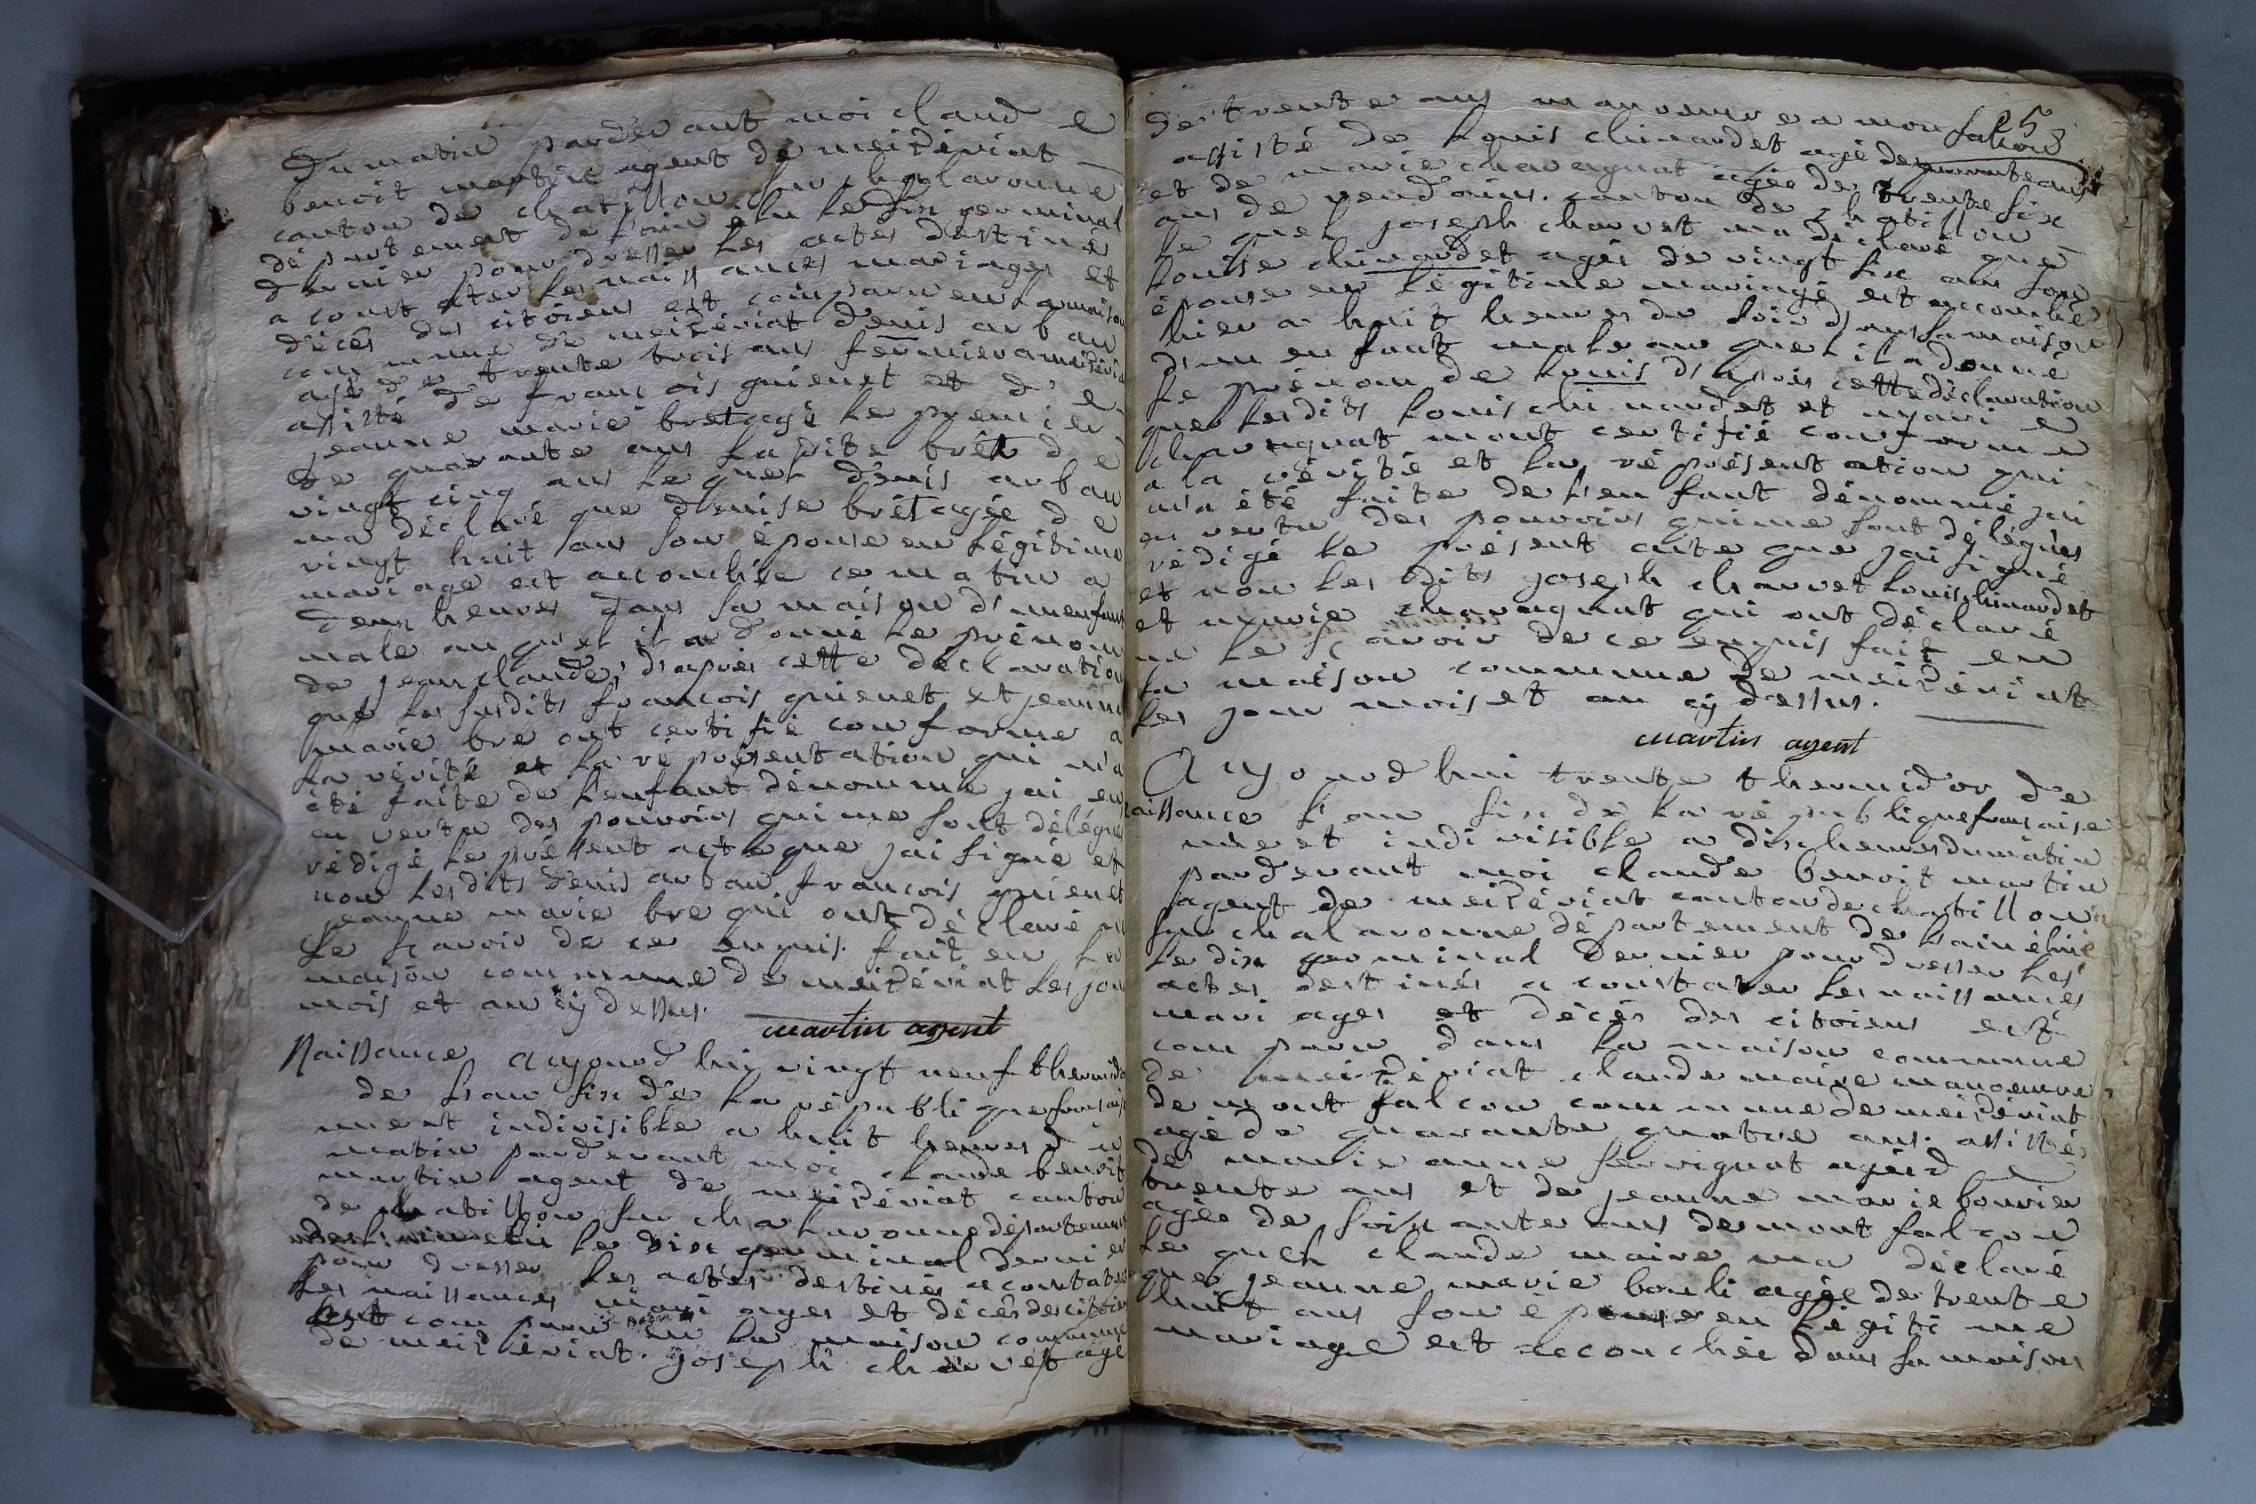 du matin pardevant moi claude
benoit martin agent de meizériat
canton de chatillon sur chalaronne
département de l'ain élu le dix germinal
dernier pour dresser les actes destinés
a constater les naissances mariages et
décés des citoiens est comparu en la maison
commune de meizériat denis arban
agé de trente trois ans fermier a meizéria
assisté de francois guienet et de
jeanne marie bretagé le premier
de quarante ans la dite brêt de
vingt cinq ans le quel denis arban
ma déclaré que denise brétagée de
vingt huit ans son épouse en légitime
mariage est accouchée ce matin a
deux heures dans sa maison d'un enfant
male au quel il a donné le prénom
de jean claude, d'apres cette déclaration
que les susdits francois guienet et jeanne
marie bre ont certifié conforme a
la vérité et la représentation qui m'a
été faite de l'enfant dénommé jai en
en vertu des pouvoirs qui me sont délégués
rédigé le présent acte que jai signé et
non lesdits denis arban, francois guienet
jeanne marie bre qui ont déclaré ne
le scavoir de ce enquis. fait en la
maison commune de meizériat les jour
mois et an cÿ dessus.
martin agent
Naissance aujourd hui vingt neuf thermido
de l'an six de la république francaise
une et indivisible a huit heures du
matin pardevant moi claude benoit
martin agent de meizériat canton
de chatillon sur chalaronne département
de l'ain elu le dix germinal dernier
pour dresser les actes destinés a constater
les naissances mariages et décés des citoiens
est comparu en la maison commune
de meizériat. joseph charvet agé
25
de trente ans manoeuvre a mon falcon
assisté de louis chinardet agé de quarante ans
et de marie chavagnat agée de trente six
ans de vendoins. canton de chatillon
le quel joseph charvet ma déclaré que
louise chinardet agés de vingt six ans son
épouse en légitime mariage est accouchée
hier a huit heures du soir dans sa maison
d'un enfant male au quel il a donné
le prénom de louis d'apres cette déclaration
que lesdits louis chinardet et marie
chavagnat mont certifié conforme
a la vérité et la représentation qui
m'a été faite de l'enfant dénommé jai
en vertu des pouvoirs qui me sont délégués
rédigé le présent acte que jai signé
et non les dits joseph charvet louis chinardet
et marie chavagnat qui ont déclaré
ne le scavoir de ce enquis fait en
la maison commune de meizériat
les jour mois et an cÿ dessus.
martin agent
Aujourd hui trente thermidor de
naissance l'an six de la république francaise
une et indivisible a dix heures du matin
pardevant moi claude benoit martin
agent de meizériat canton de chatillon
sur chalaronne département de l'ain élu
le dix germinal dernier pour dresser les
actes destinés a constater les naissances
mariages et décés des citoiens est
comparu dans la maison commune
de meizériat claude maire manoeuvre
de mont falcon commune de meizériat
agé de quarante quatre ans. assistés
de marie anne servignat agée de
trente ans et de jeanne marie bouvier
agée de soixante ans de mont falcon
le quel claude maire ma déclaré
que jeanne marie bouli agée de trente
huit ans son épouse en légitime
mariage est accouchée dans sa maison